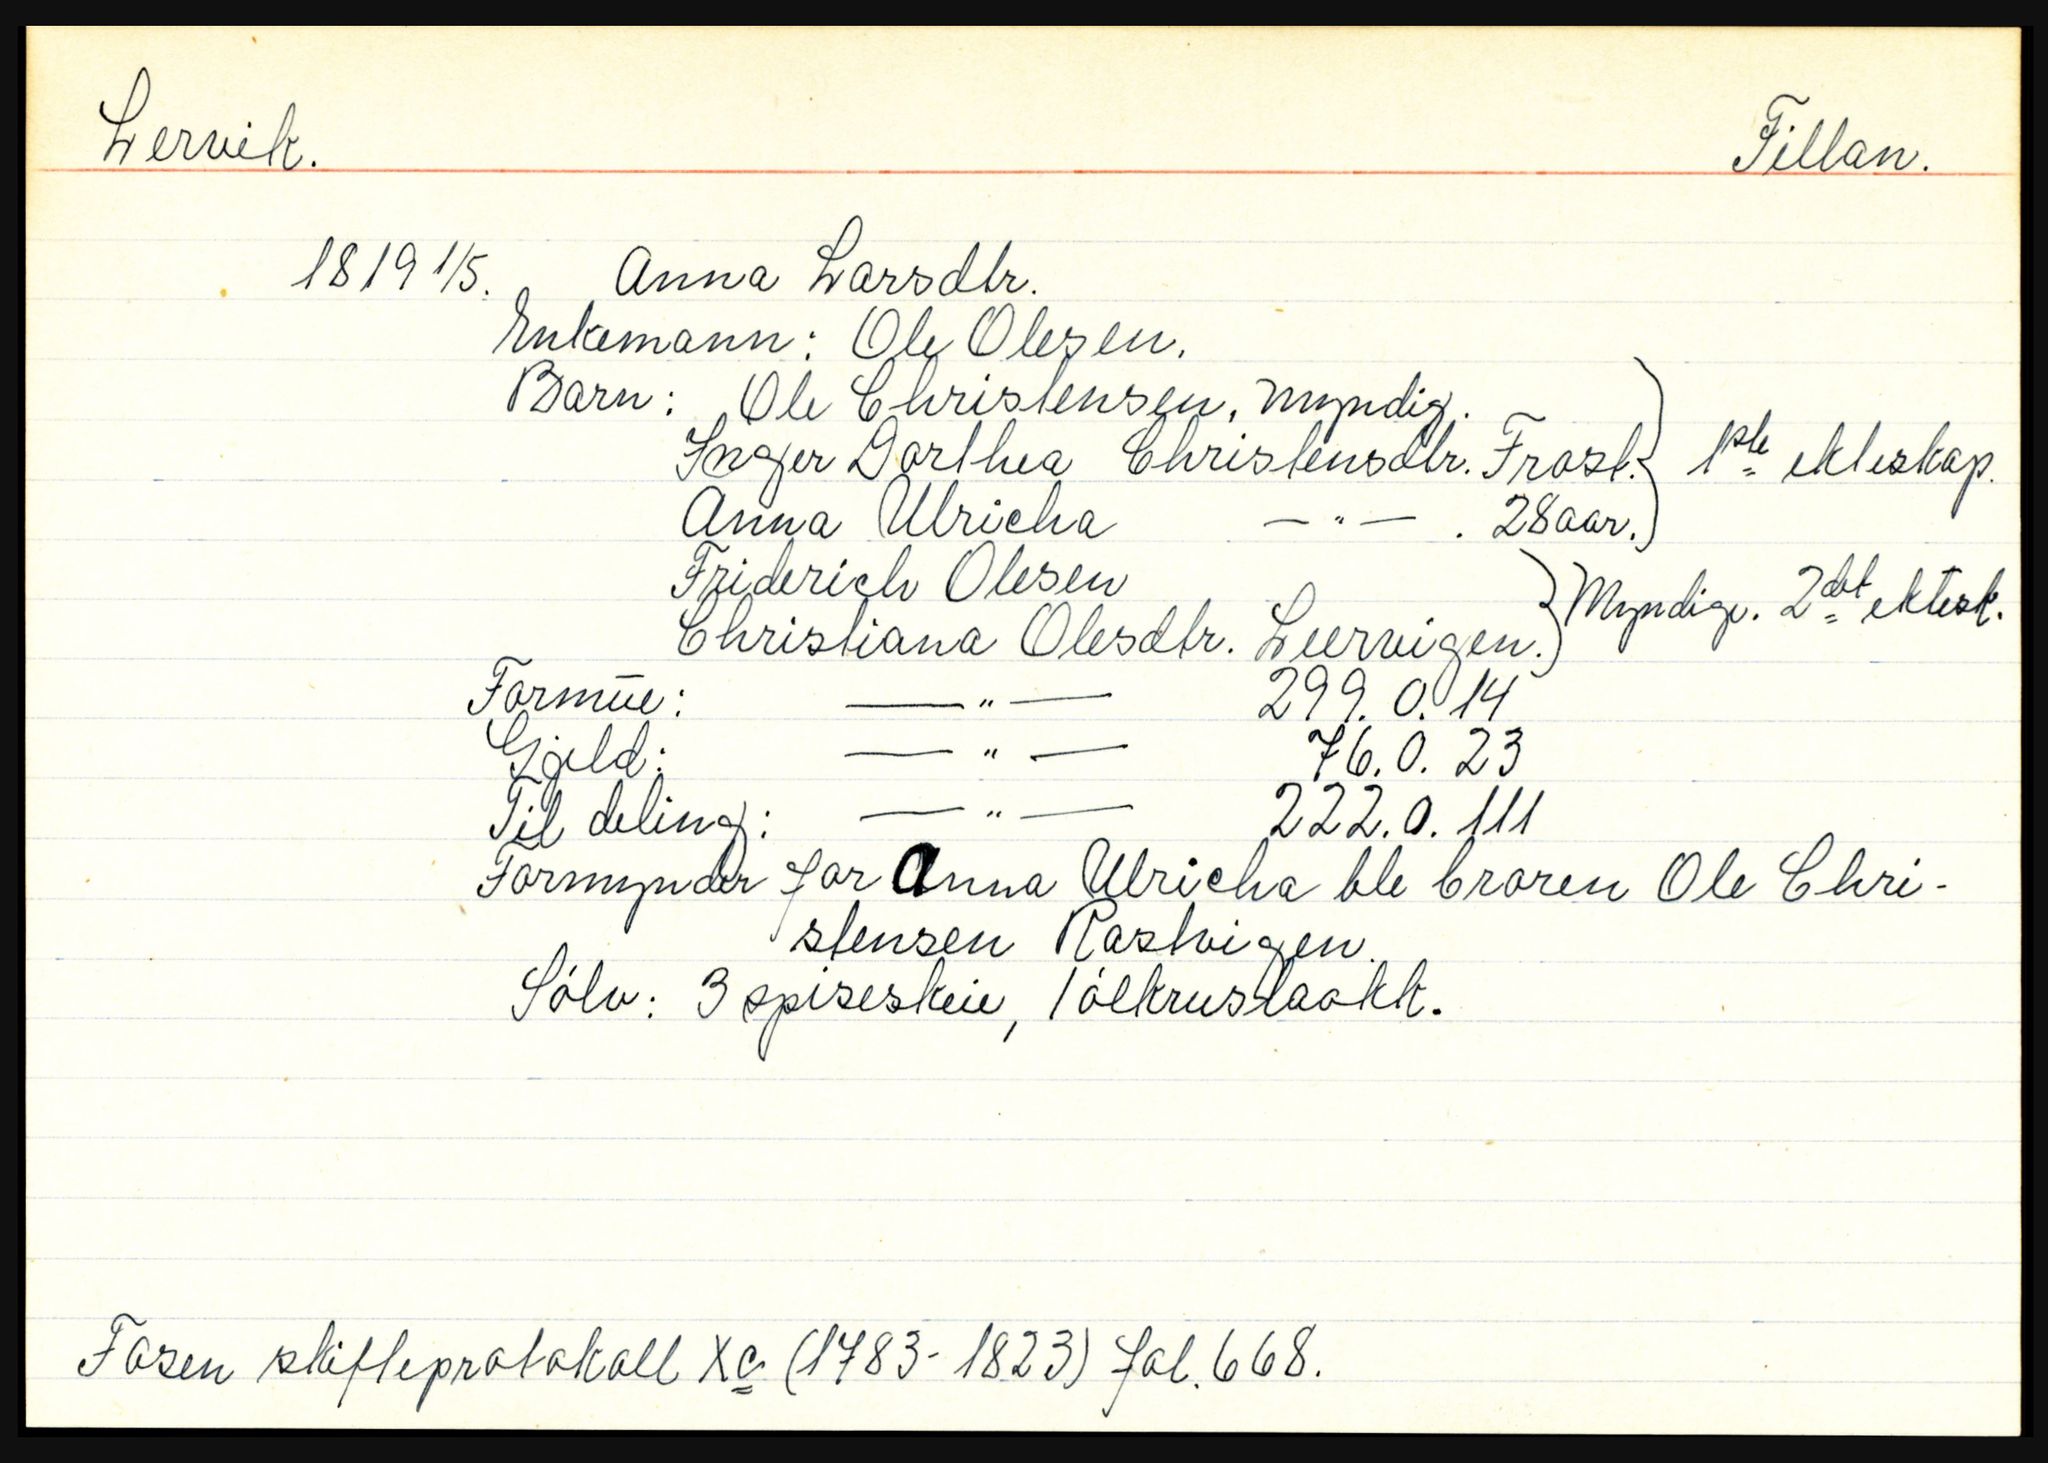 Lervik. Fillan.
1819 1/5. Anna Larsdtr.
Enkemann: Ole Olesen.
Barn: Ole Christensen, myndig.
Inger Dorthea Christensdtr. Frost. } 1ste ekteskap.
Anna Ulricha — " — . 28 aar.
Friderich Olesen
Christiana Olesdtr. Leervigen. } Myndige. 2det ektesk.
Formūe: — " — 299. 0. 14
Gjeld: — " — 76. 0. 23
Til deling: — " — 222. 0. 111
Formynder for Anna Ulricha ble broren Ole Chri-
stensen Rastvigen.
Sólv: 3 spiseskeie, 1 ólkrus laakk.
Fosen skifteprotokoll Xc (1783-1823) fol. 668.